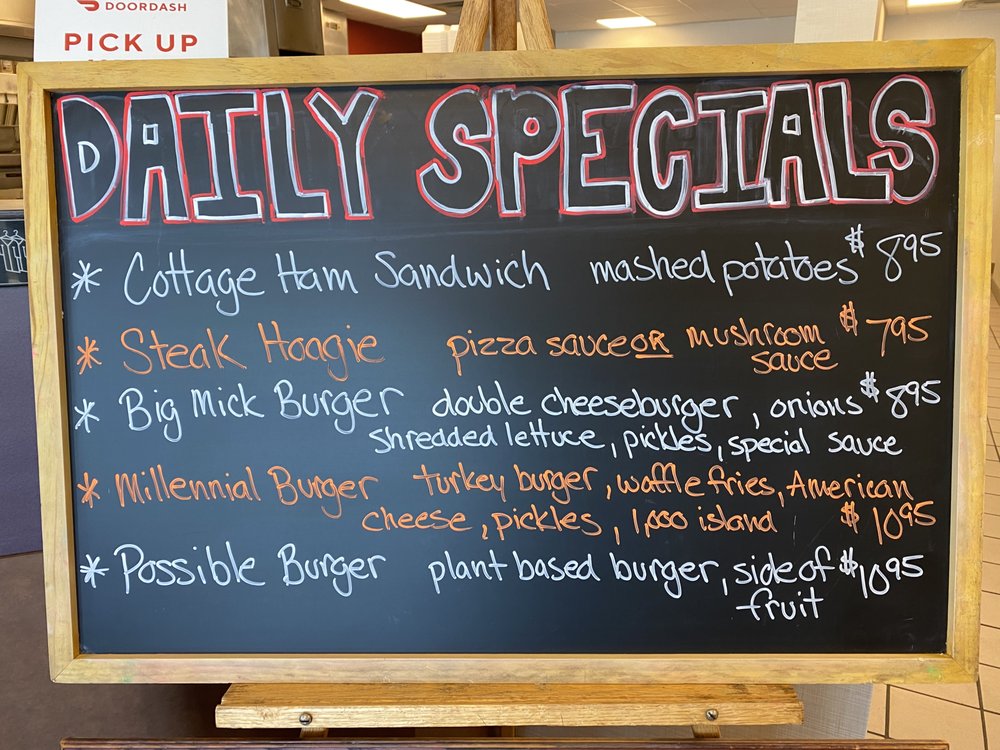 DOORDASH
PICK UP
DAILY SPECIALS
* Cottage Ham Sandwich mashed potatoes $8.95
* Steak Hoagie pizza sauce OR mushroom $7.95
sauce
* Big Mick Burger double cheeseburger, onions $8.95
shredded lettuce, pickles, special sauce
* Millennial Burger turkey burger, waffle fries, American
cheese, pickles, 1,000 island $10.95
* Possible Burger plant based burger, side of $10.95
fruit